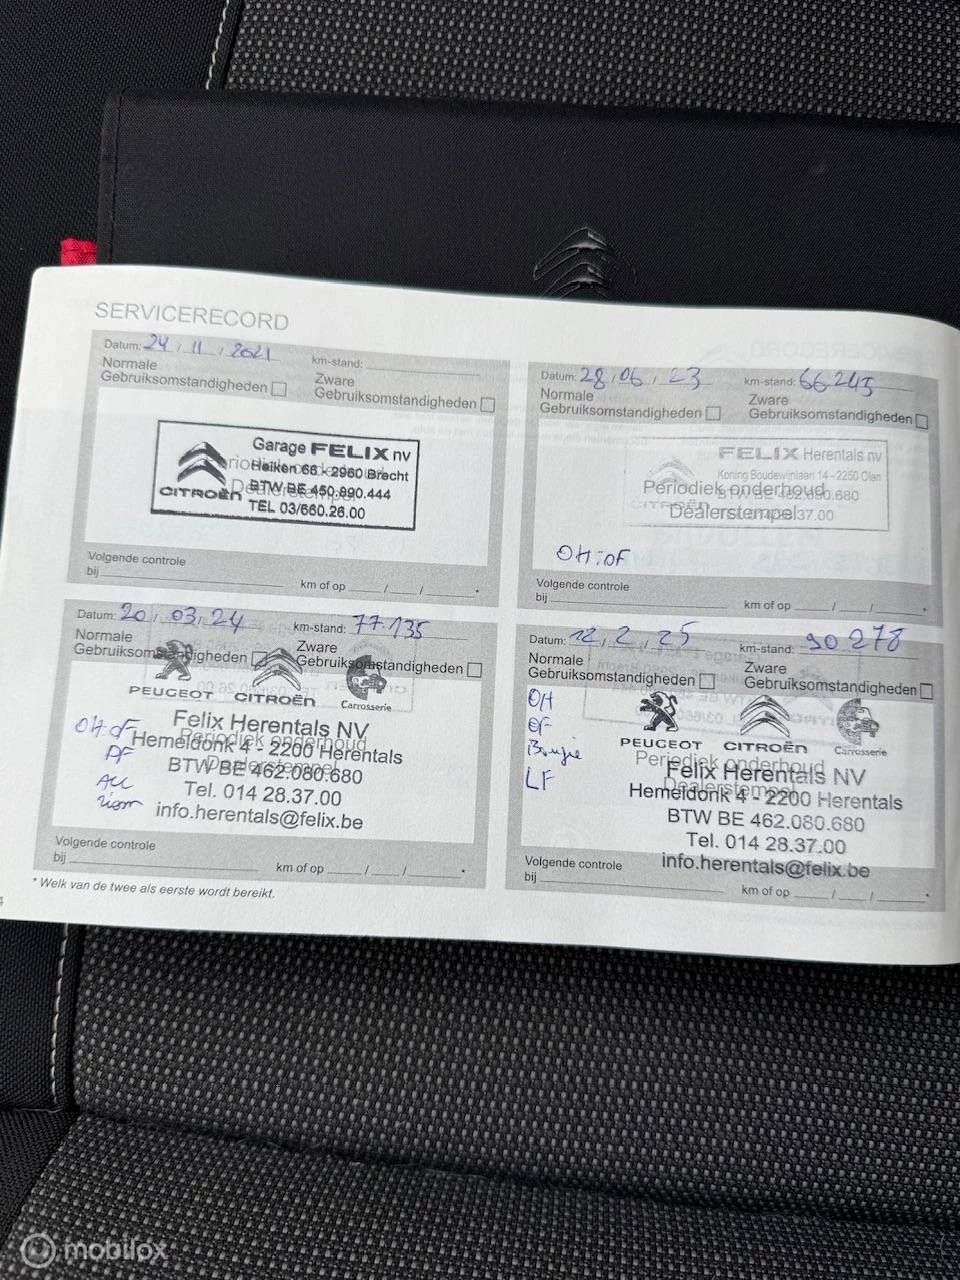 SERVICERECORD
Datum: 24 / 11 / 2021 km-stand:
Normale Gebruiksomstandigheden
Zware Gebruiksomstandigheden
Garage FELIX nv
Heiken 66 - 2960 Brecht
BTW BE 450.890.444
TEL 03/660.26.00
CITROËN
Periodiek onderhoud
Dealerstempel
Volgende controle
bij km of op / / *
Datum: 28 / 06 / 23 km-stand: 66245
Normale Gebruiksomstandigheden
Zware Gebruiksomstandigheden
FELIX Herentals nv
Koning Boudewijnlaan 14 - 2250 Olen
Periodiek onderhoud
BTW BE 462.080.680
CITROËN
Dealerstempel
37.00
OH: OF
Volgende controle
bij km of op / / *
Datum: 20 / 03 / 24 km-stand: 77.135
Normale Gebruiksomstandigheden
Zware Gebruiksomstandigheden
PEUGEOT CITROËN Carrosserie
Felix Herentals NV
Periodiek onderhoud
Hemeldonk 4 - 2200 Herentals
Dealerstempel
BTW BE 462.080.680
Tel. 014 28.37.00
info.herentals@felix.be
OH. OF
PF
Volgende controle
bij km of op / / *
Datum: 12 / 2 / 25 km-stand: 90 278
Normale Gebruiksomstandigheden
Zware Gebruiksomstandigheden
OH
OF
Bougie
LF
PEUGEOT CITROËN Carrosserie
Periodiek onderhoud
Felix Herentals NV
Dealerstempel
Hemeldonk 4 - 2200 Herentals
BTW BE 462.080.680
Tel. 014 28.37.00
info.herentals@felix.be
Volgende controle
bij km of op / / *
* Welk van de twee als eerste wordt bereikt.
4
mobilox